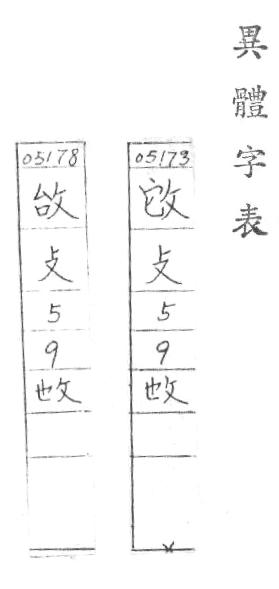 異體字表
05173
攴
5
9
𢻱
05178
攴
5
9
𢻱